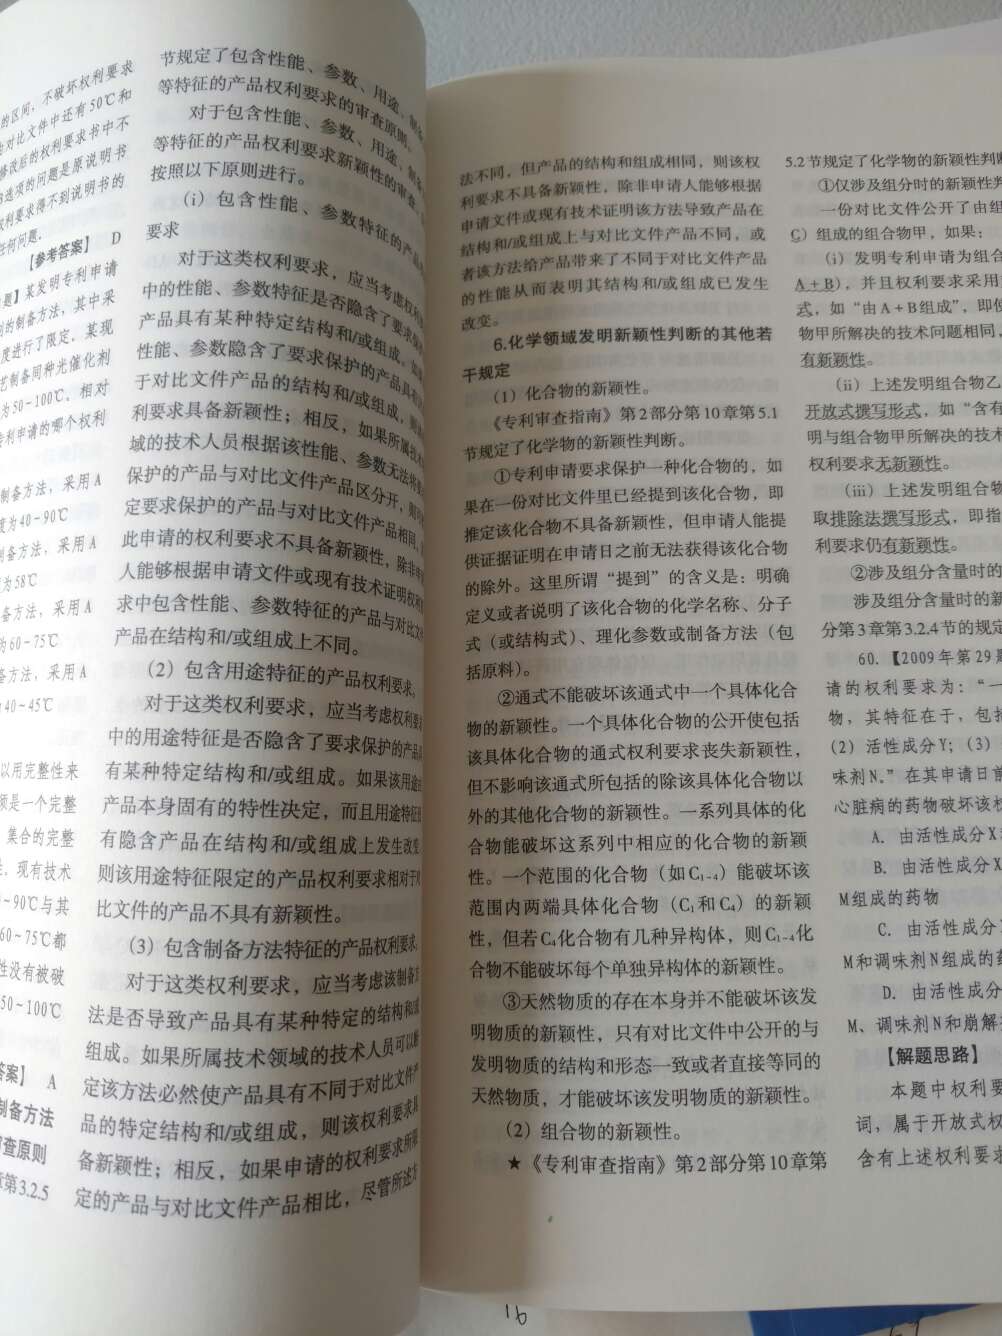 的区间，不破坏权利要求
对比文件中还有50℃和
修改后的权利要求书中不
选项的问题是原说明书
权利要求得不到说明书的
任何问题．
【参考答案】 D
题】某发明专利申请
的制备方法，其中采
度进行了限定，某现
艺制备同种光催化剂
为50～100℃。相对
专利申请的哪个权利
制备方法，采用A
度为40～90℃
制备方法，采用A
为58℃
备方法，采用A
为60～75℃
备方法，采用A
为40～45℃
以用完整性来
须是一个完整
集合的完整
现有技术
～90℃与其
60～75℃都
性没有被破
50～100℃
答案】 A
制备方法
审查原则
章第3.2.5
节规定了包含性能、参数、用途、制备
等特征的产品权利要求的审查原则。
对于包含性能、参数、用途、制备
等特征的产品权利要求新颖性的审查
按照以下原则进行。
（i）包含性能、参数特征的产品
要求
对于这类权利要求，应当考虑权利
中的性能、参数特征是否隐含了要求保护
产品具有某种特定结构和/或组成。如
性能、参数隐含了要求保护的产品具有
于对比文件产品的结构和/或组成，则
利要求具备新颖性；相反，如果所属技
域的技术人员根据该性能、参数无法将
保护的产品与对比文件产品区分开，则可
定要求保护的产品与对比文件产品相同，
此申请的权利要求不具备新颖性，除非申
人能够根据申请文件或现有技术证明权利
求中包含性能、参数特征的产品与对比文
产品在结构和/或组成上不同。
（2）包含用途特征的产品权利要求。
对于这类权利要求，应当考虑权利要
中的用途特征是否隐含了要求保护的产品
有某种特定结构和/或组成。如果该用途
产品本身固有的特性决定，而且用途特征
有隐含产品在结构和/或组成上发生改变，
则该用途特征限定的产品权利要求相对于
比文件的产品不具有新颖性。
（3）包含制备方法特征的产品权利要求。
对于这类权利要求，应当考虑该制备方
法是否导致产品具有某种特定的结构和/或
组成。如果所属技术领域的技术人员可以断
定该方法必然使产品具有不同于对比文件产
品的特定结构和/或组成，则该权利要求具
备新颖性；相反，如果申请的权利要求所限
定的产品与对比文件产品相比，尽管所述方
法不同，但产品的结构和组成相同，则该权
利要求不具备新颖性，除非申请人能够根据
申请文件或现有技术证明该方法导致产品在
结构和/或组成上与对比文件产品不同，或
者该方法给产品带来了不同于对比文件产品
的性能从而表明其结构和/或组成已发生
改变。
6.化学领域发明新颖性判断的其他若
干规定
（1）化合物的新颖性。
《专利审查指南》第2部分第10章第5.1
节规定了化学物的新颖性判断。
①专利申请要求保护一种化合物的，如
果在一份对比文件里已经提到该化合物，即
推定该化合物不具备新颖性，但申请人能提
供证据证明在申请日之前无法获得该化合物
的除外。这里所谓“提到”的含义是：明确
定义或者说明了该化合物的化学名称、分子
式（或结构式）、理化参数或制备方法（包
括原料）。
②通式不能破坏该通式中一个具体化合
物的新颖性。一个具体化合物的公开使包括
该具体化合物的通式权利要求丧失新颖性，
但不影响该通式所包括的除该具体化合物以
外的其他化合物的新颖性。一系列具体的化
合物能破坏这系列中相应的化合物的新颖
性。一个范围的化合物（如C₁₋₄）能破坏该
范围内两端具体化合物（C₁和C₄）的新颖
性，但若C₄化合物有几种异构体，则C₁₋₄化
合物不能破坏每个单独异构体的新颖性。
③天然物质的存在本身并不能破坏该发
明物质的新颖性，只有对比文件中公开的与
发明物质的结构和形态一致或者直接等同的
天然物质，才能破坏该发明物质的新颖性。
（2）组合物的新颖性。
★《专利审查指南》第2部分第10章第
5.2节规定了化学物的新颖性判断
①仅涉及组分时的新颖性判
一份对比文件公开了由组
C）组成的组合物甲，如果：
（i）发明专利申请为组合
A＋B），并且权利要求采用
式，如“由A＋B组成”，即使
物甲所解决的技术问题相同，
有新颖性。
（ii）上述发明组合物乙
开放式撰写形式，如“含有
明与组合物甲所解决的技术
权利要求无新颖性。
（iii）上述发明组合物
取排除法撰写形式，即指
利要求仍有新颖性。
②涉及组分含量时的新
涉及组分含量时的新
分第3章第3.2.4节的规定
60.【2009年第29题
请的权利要求为：“一
物，其特征在于，包括
（2）活性成分Y；（3）
味剂N.”在其申请日前
心脏病的药物破坏该权
A．由活性成分X
B．由活性成分X
M组成的药物
C．由活性成分
M和调味剂N组成的药
D．由活性成分
M、调味剂N和崩解
【解题思路】
本题中权利要
词，属于开放式权
含有上述权利要求
16